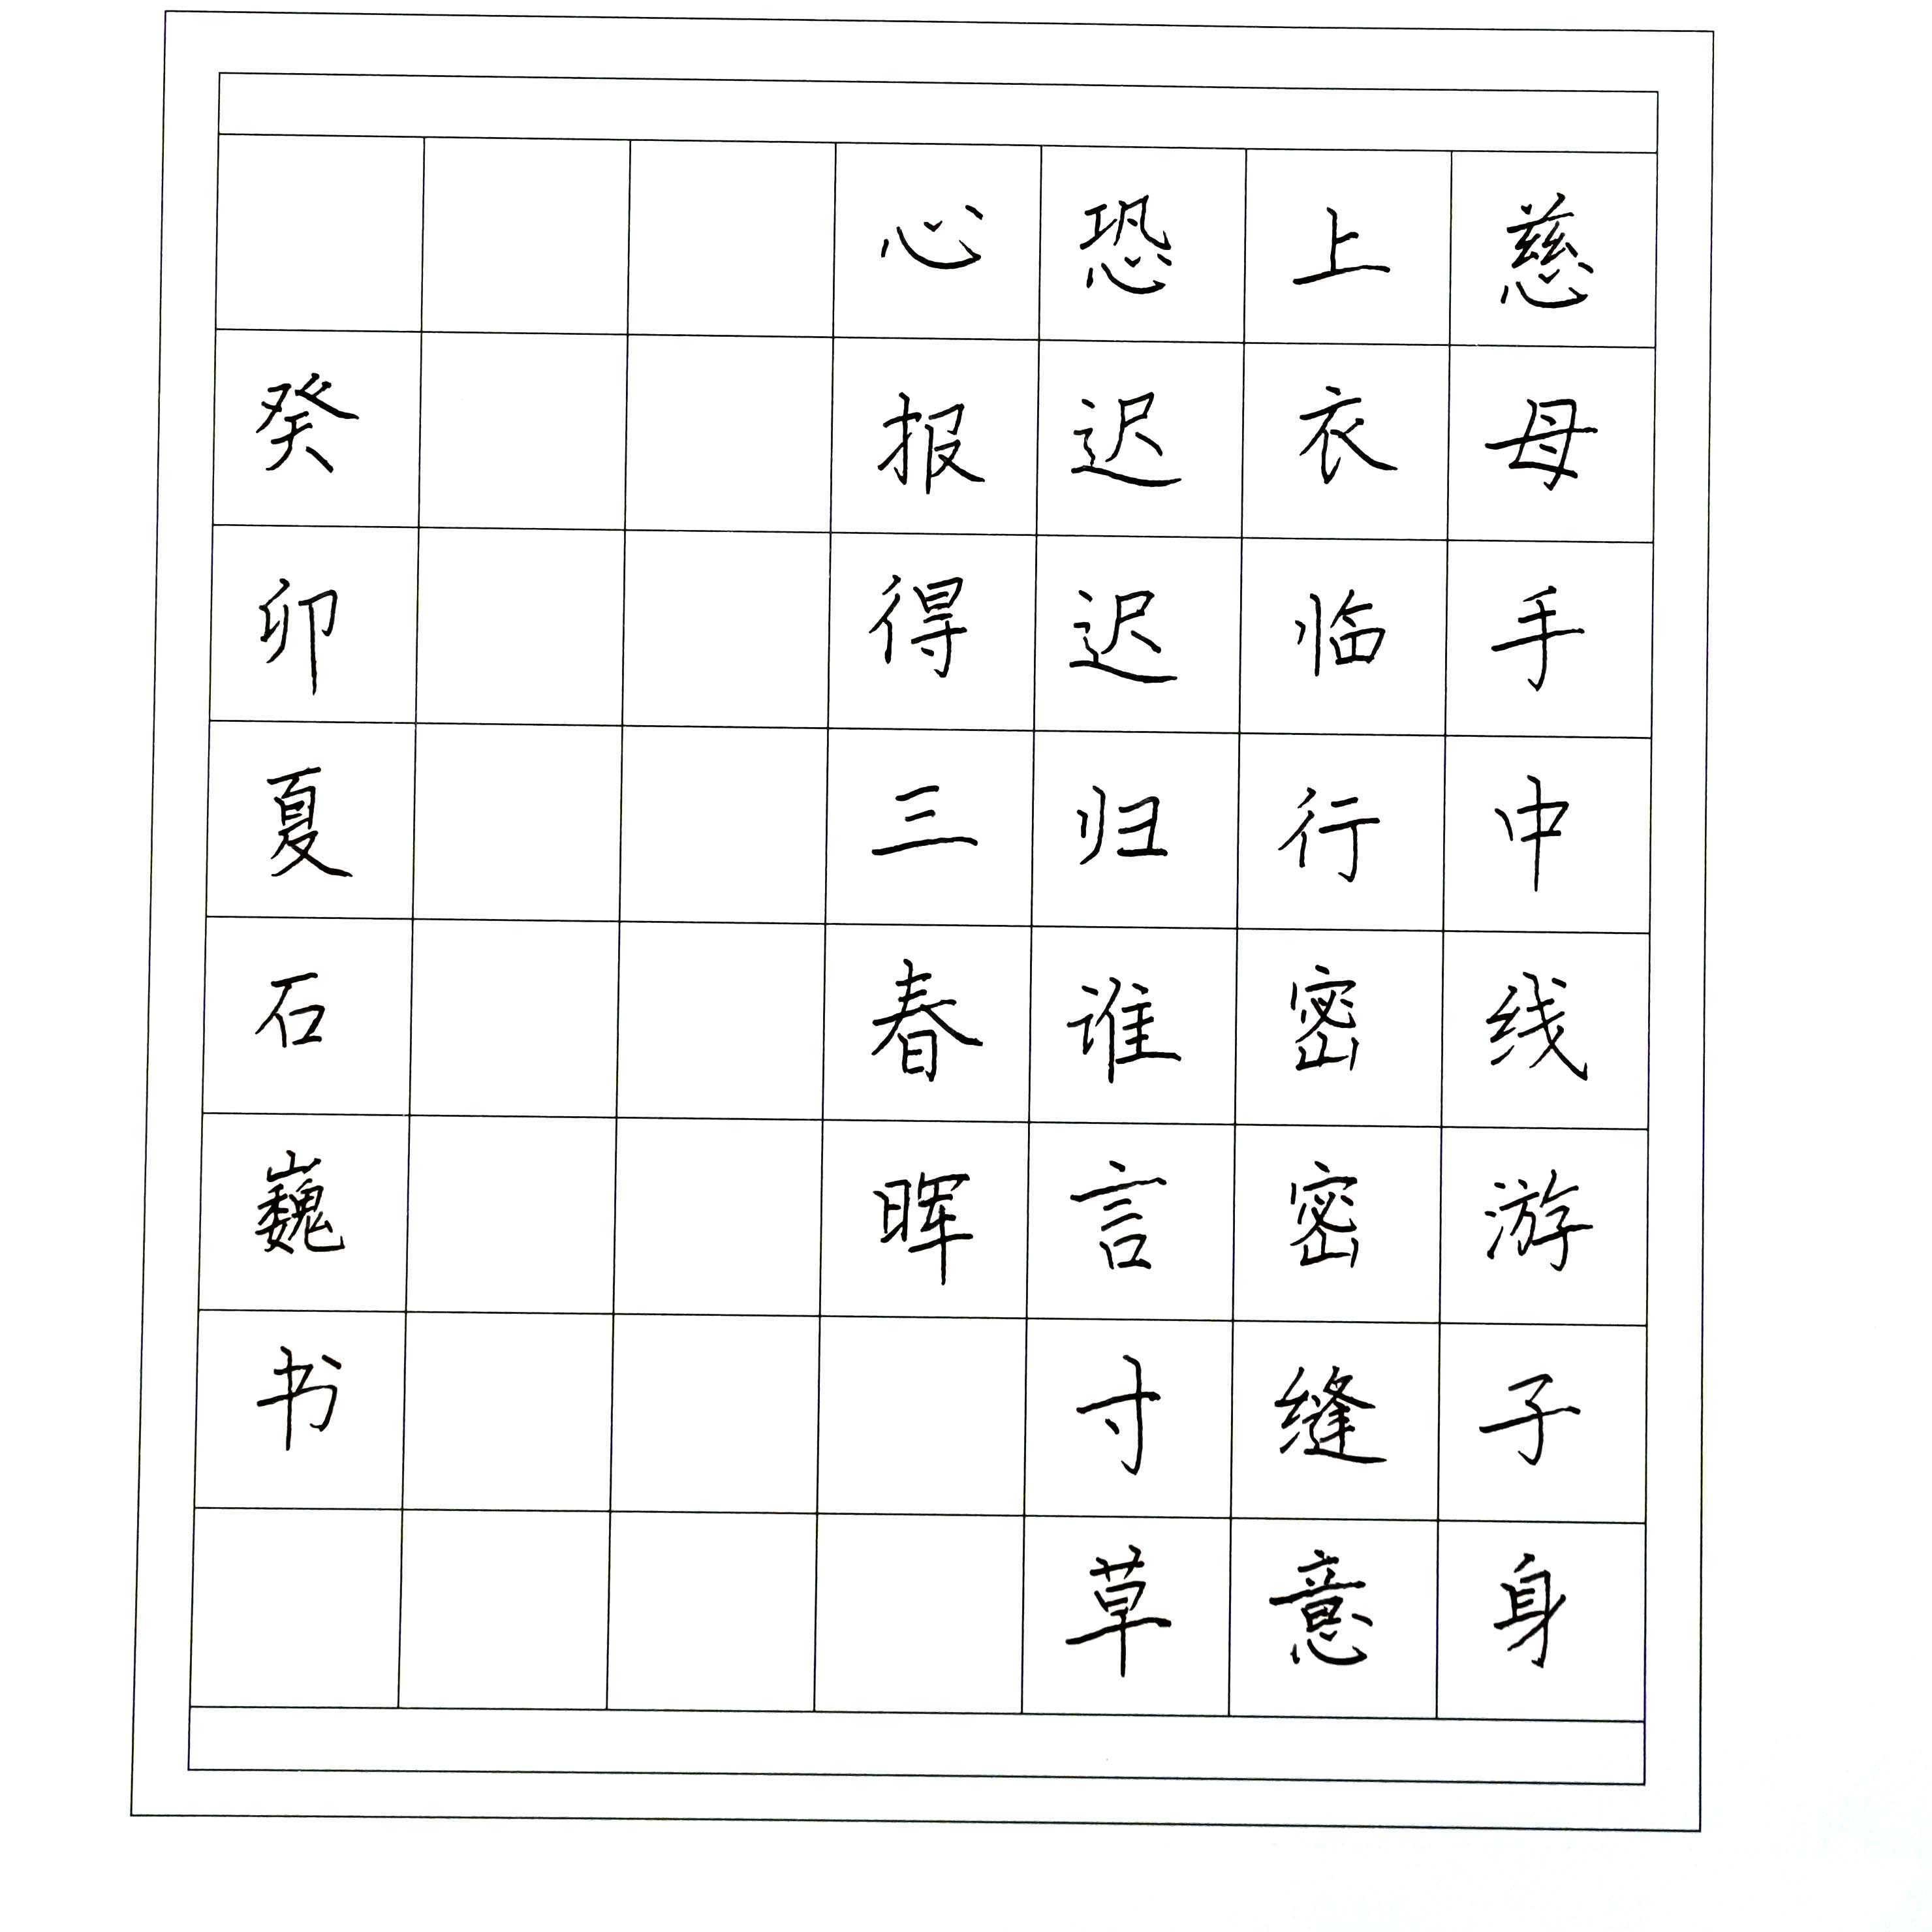 慈母手中线游子身
上衣临行密密缝意
恐迟迟归谁言寸草
心报得三春晖
癸卯夏石巍书